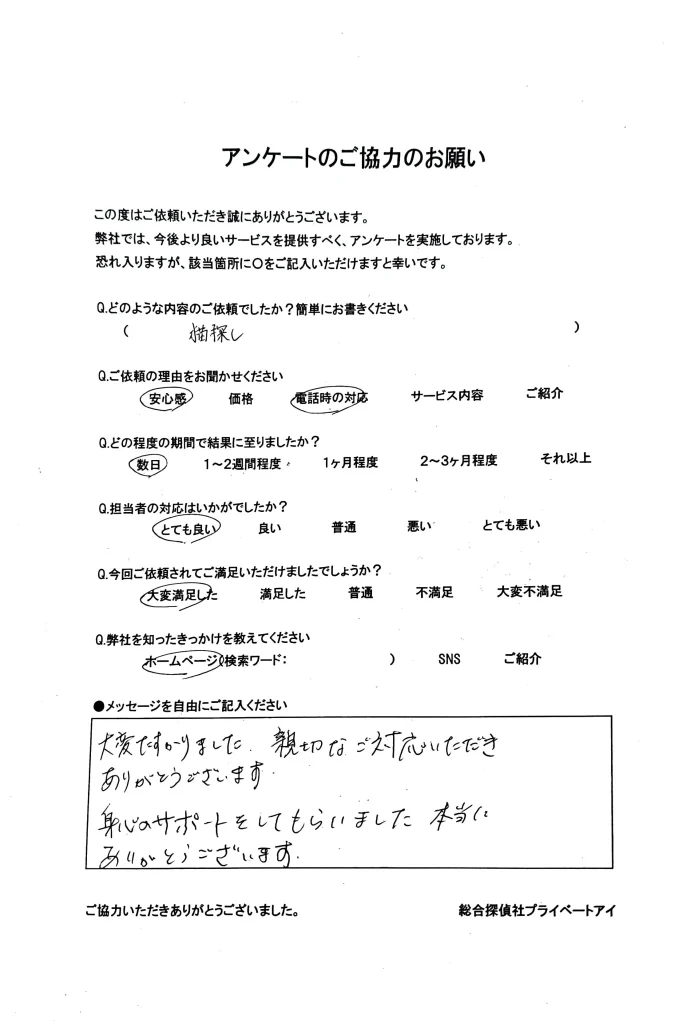 アンケートのご協力のお願い
この度はご依頼いただき誠にありがとうございます。
弊社では、今後より良いサービスを提供すべく、アンケートを実施しております。
恐れ入りますが、該当箇所に〇をご記入いただけますと幸いです。
Q.どのような内容のご依頼でしたか？簡単にお書きください
（ 猫探し ）
Q.ご依頼の理由をお聞かせください
安心感 価格 電話時の対応 サービス内容 ご紹介
Q.どの程度の期間で結果に至りましたか？
数日 1～2週間程度 1ヶ月程度 2～3ヶ月程度 それ以上
Q.担当者の対応はいかがでしたか？
とても良い 良い 普通 悪い とても悪い
Q.今回ご依頼されてご満足いただけましたでしょうか？
大変満足した 満足した 普通 不満足 大変不満足
Q.弊社を知ったきっかけを教えてください
ホームページ（検索ワード： ） SNS ご紹介
●メッセージを自由にご記入ください
大変たすかりました。親切なご対応いただき
ありがとうございます。
身心のサポートをしてもらいました 本当に
ありがとうございます。
ご協力いただきありがとうございました。 総合探偵社プライベートアイ